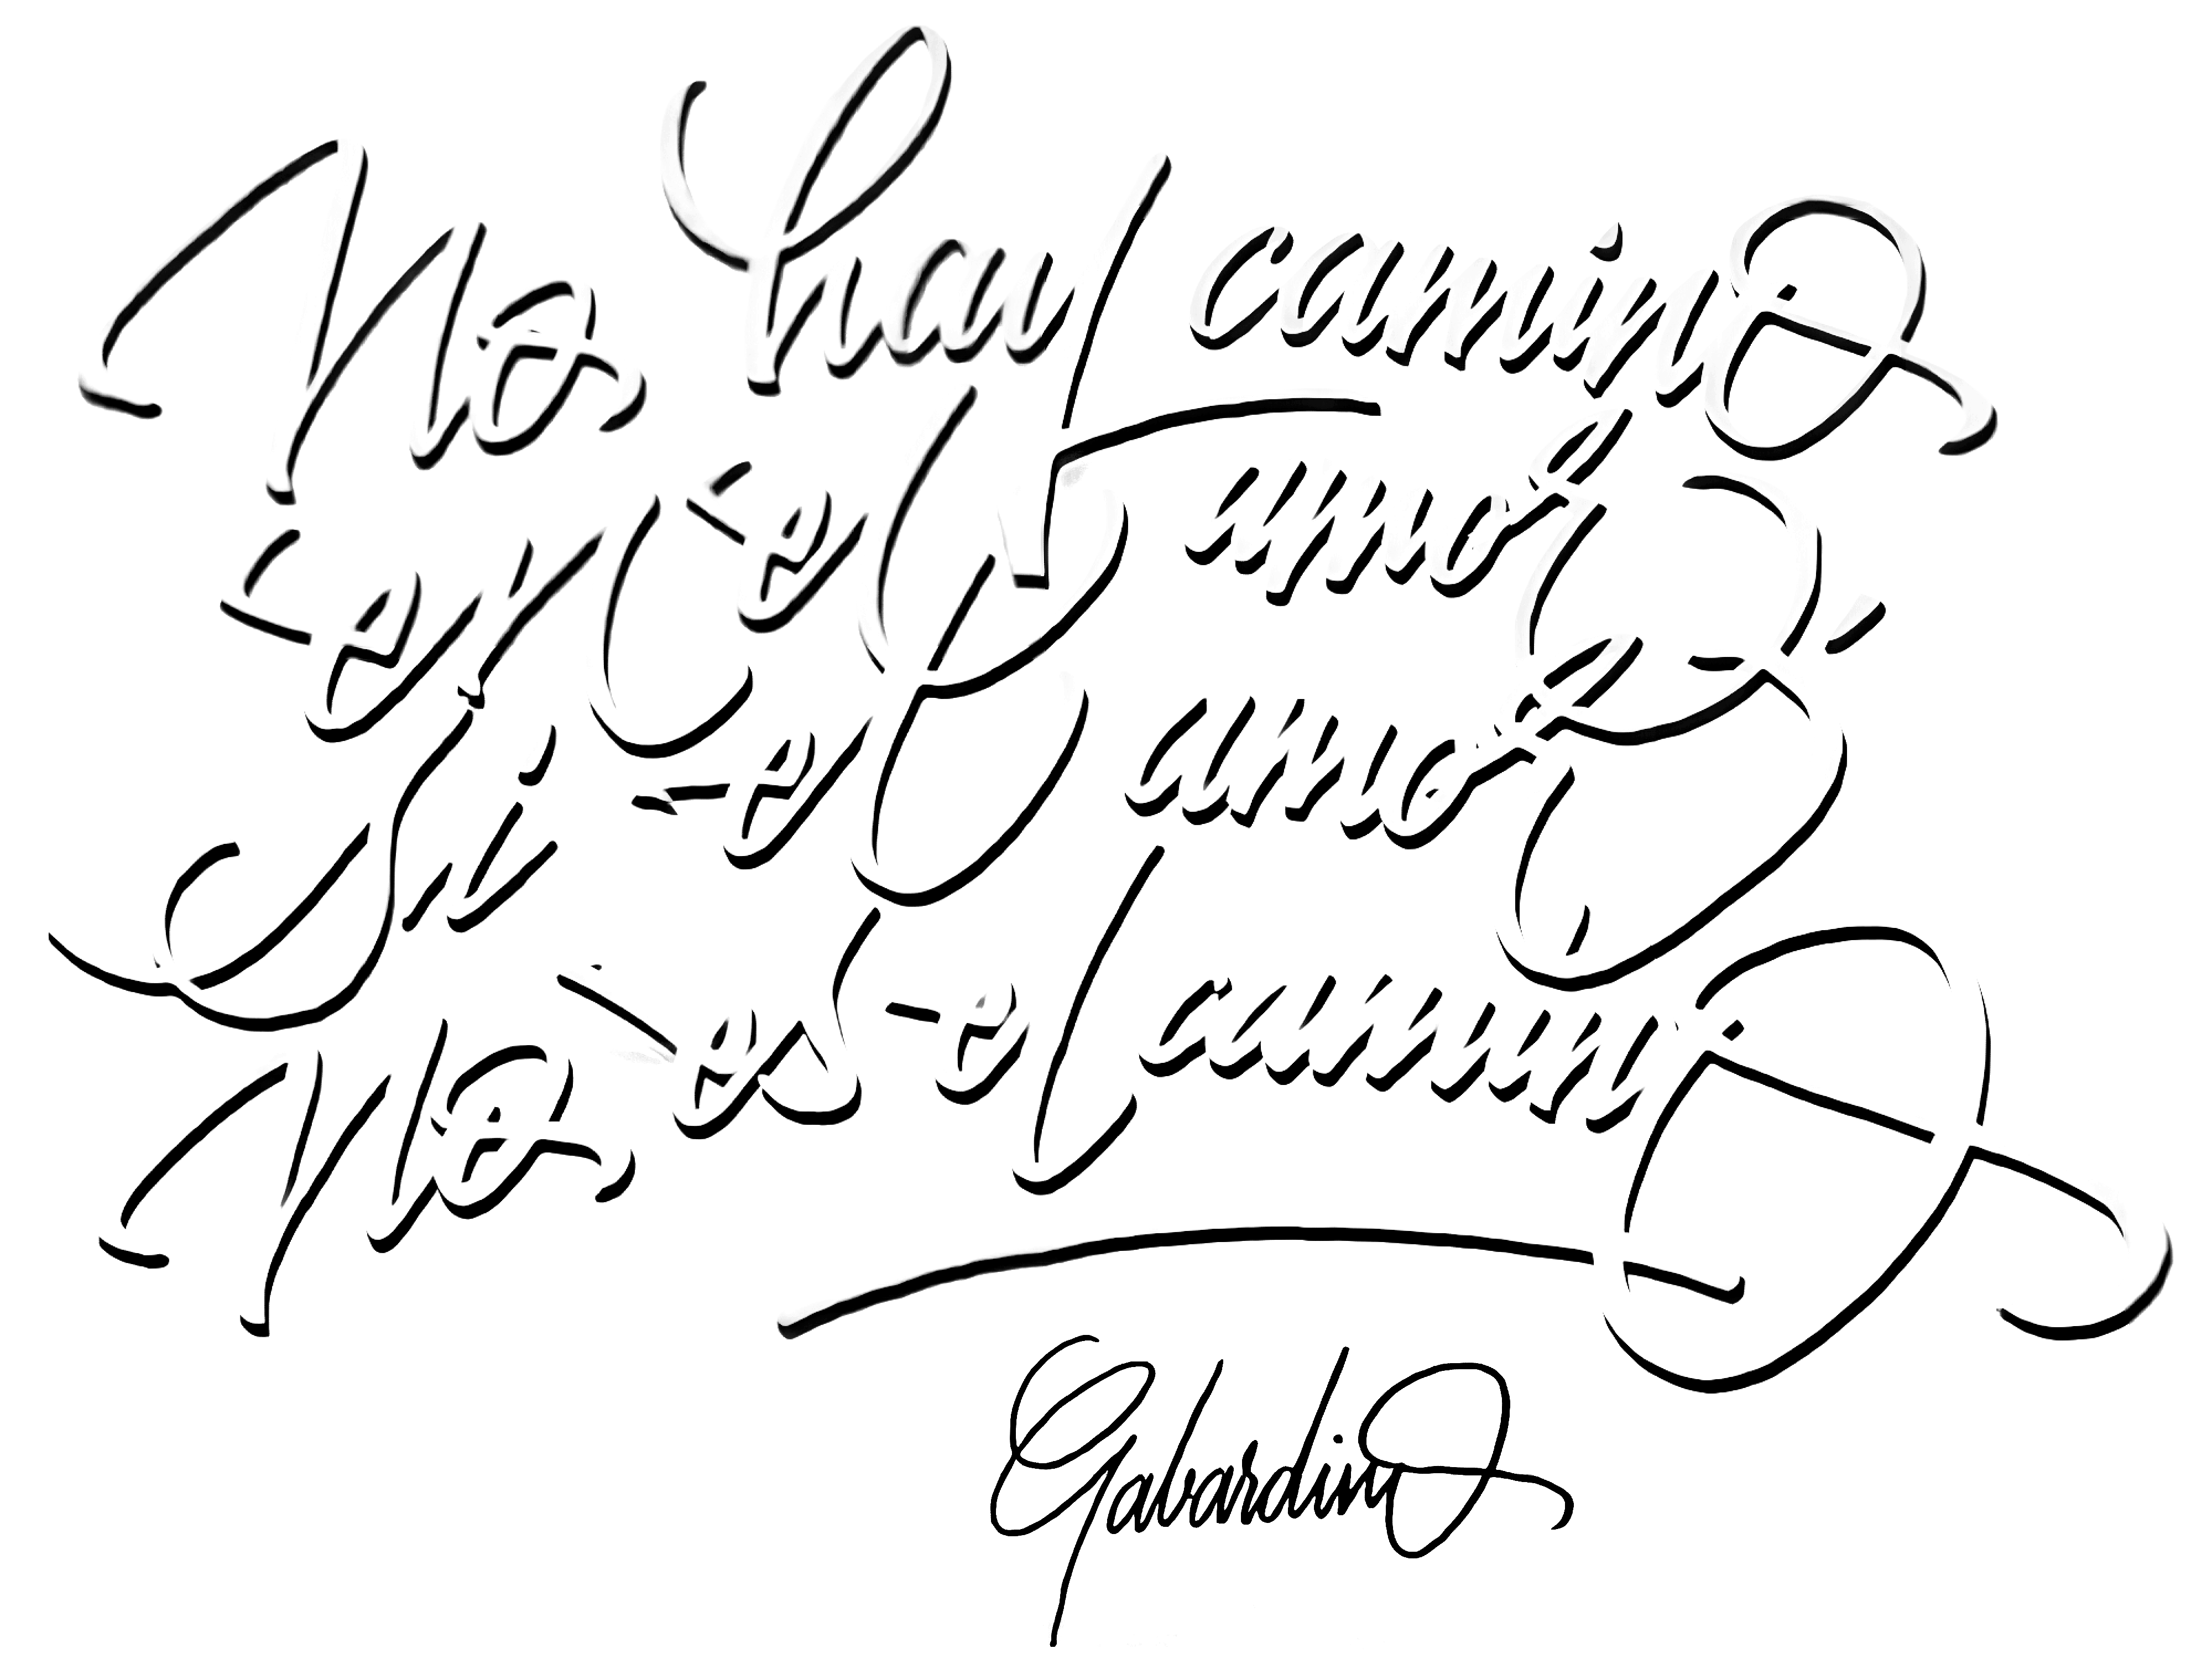 No hay camino
en el amor
Si el amor
No es el camino
Gabardino